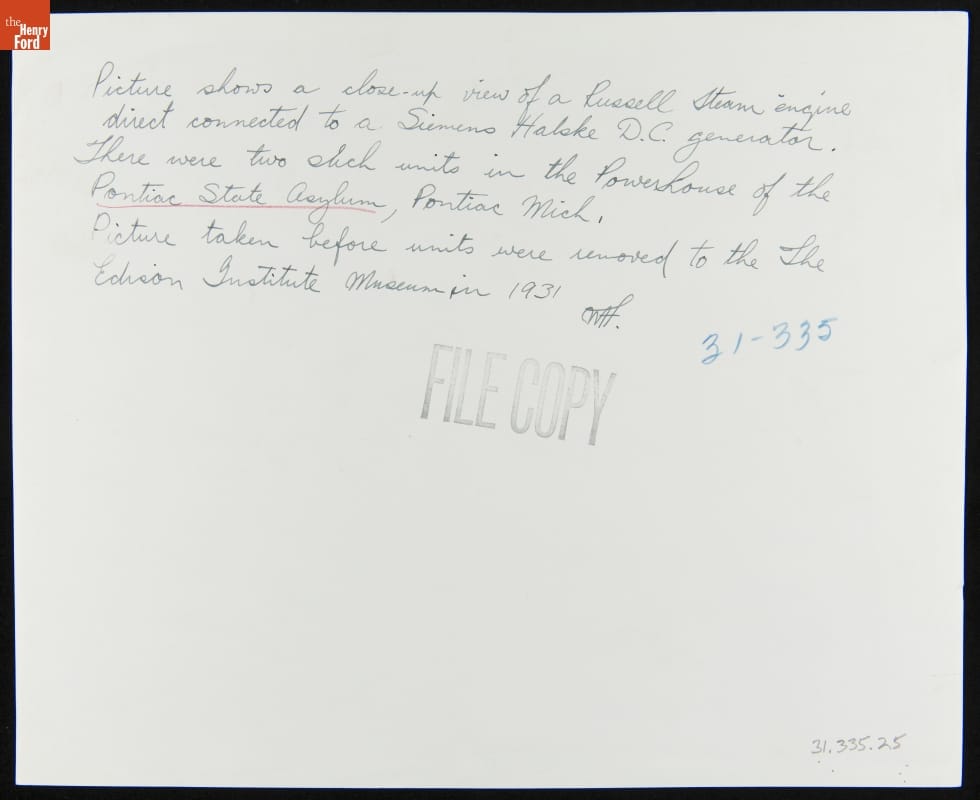 the
Henry
Ford
Picture shows a close-up view of a Russell Steam engine
direct connected to a Siemens Halske D.C. generator.
There were two such units in the Powerhouse of the
Pontiac State Asylum, Pontiac Mich.
Picture taken before units were removed to the The
Edison Institute Museum in 1931
31-335
FILE COPY
31.335.25